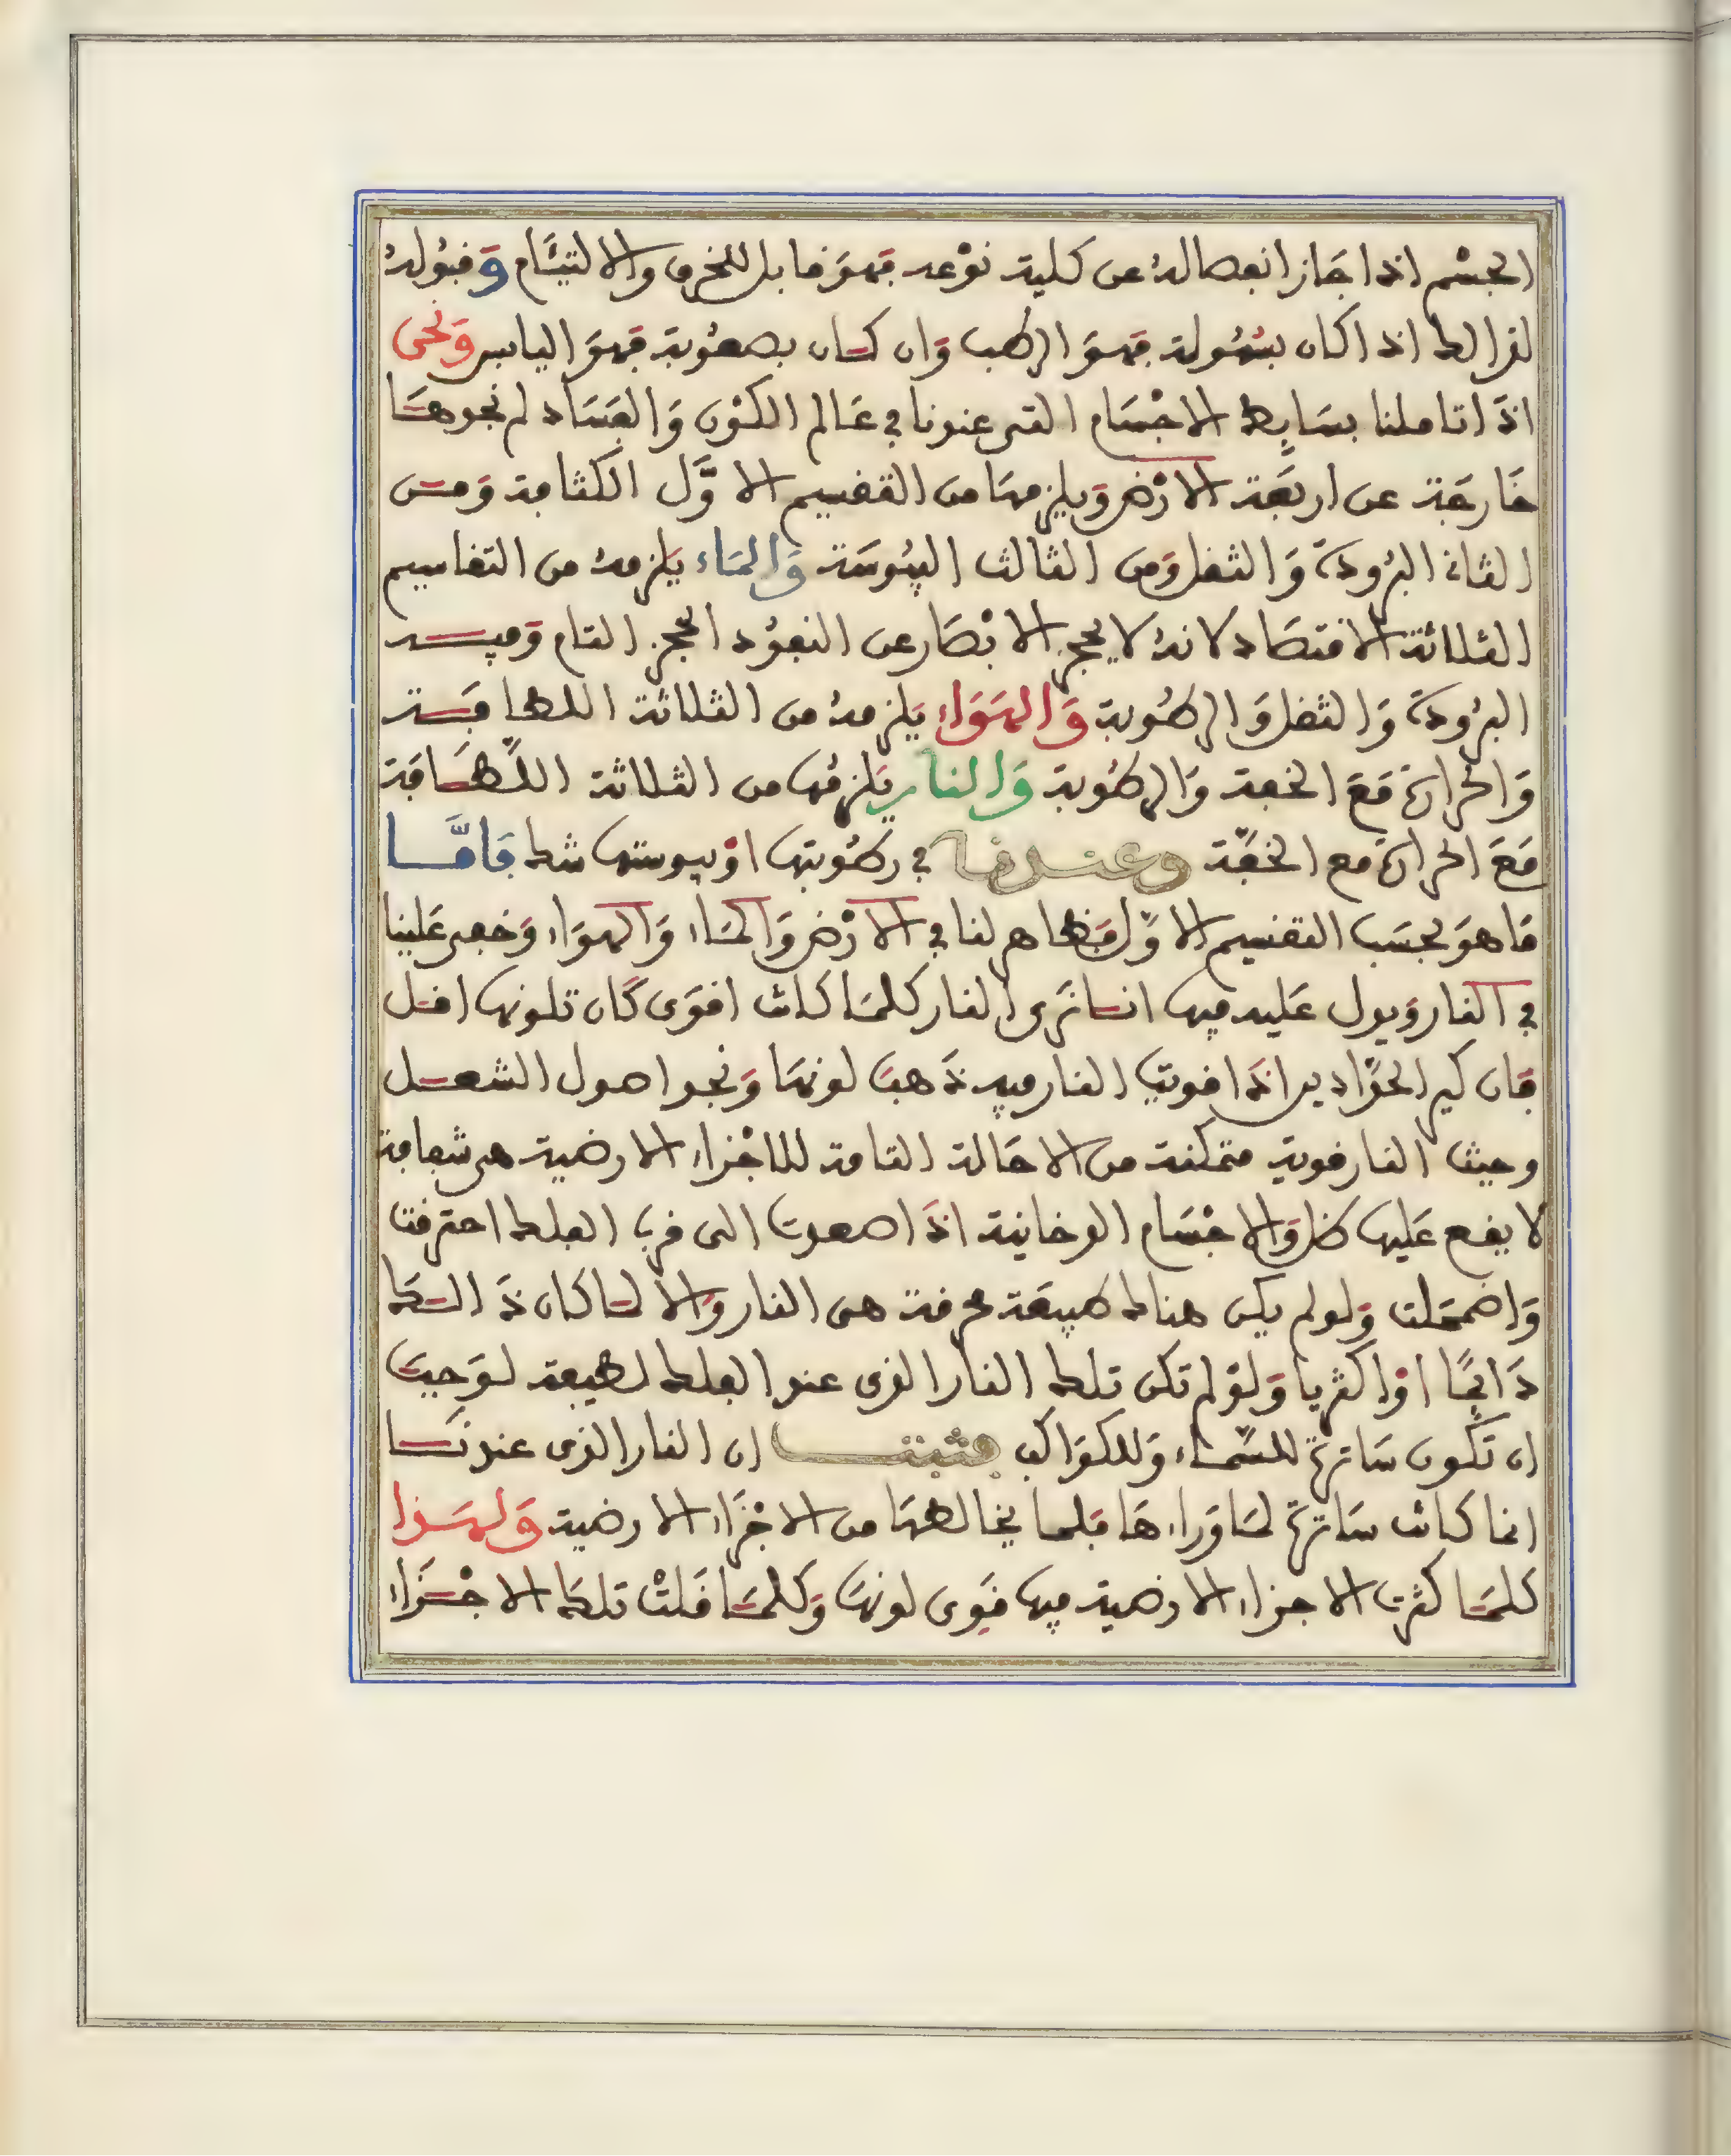 الجسْم اذا جَاز انفصالهُ عن كلية نوْعه فهوَ قابل للخرق والالتيَام وَقبُولهُ
لذالك اذا كان بسُهُولة فهوَ الرطب وَان كان بصعُوبة فهوَ اليابس وَنحن
اذَا تاملنا بسَايِط الاجْسَام التى عندنا في عَالم الكوْن وَالفسَاد لم نجدهَا
خَارجَة عن اربعَة الارْض وَيلزمهَا من التقسيم الاوَّل الكثافة وَمن
الثانى البرُودةَ وَالثقل وَمن الثالث اليبُوسَة وَالمَاء يَلزمهُ من التقاسيم
الثلاثة الاقتصَاد لانهُ لا يحجز الابْصَار عن النفوُد الحجز التام وَفيه
البرُودةَ وَالثقل وَالرطُوبة وَالهوَاء يَلزمهُ من الثلاثة اللطافَة
وَالحرارةَ مَعَ الخفة وَالرطُوبة وَالنار يَلزمُها من الثلاثة اللَّطَافَة
مَعَ الحرارةَ مع الخفَّة وعندنا في رطُوبتها اوْ يبوستها شك فَامَّا
مَا هوَ بحسَب التقسيم الاوَّل فظاهر لنا في الارْض وَالمَاء وَالهوَاء وَخفى عَلينا
في النار وَيدل عَليه فيها انا نرَى النار كلمَا كانت اقوَى كَان تلونها اقل
فان كير الحدَّادين اذَا قويت النار فيه ذَهبَ لونهَا وَنجد اصول الشعل
وحيث النار قوية متمكنة من الاحَالة التامة للاجْزاء الارضية هى شفافة
لا يقع عَليها ظل وَالاجْسَام الدخانية اذَا صعدت الى قرب الفلك احترقت
وَاضمحَلت وَلو لم يكن هناك طبيعَة محرقة هى النار وَالا لما كان ذَالك
دَايمًا اوْ اكثريا وَلوْ لم تكن تلك النار الذى عند الفلك لطيفة لوَجبَ
ان تكون سَاترةً للسَّمَاء وَللكوَاكب فثبت ان النار الذى عندنَا
انما كانت سَاترةً لمَا وَراءهَا فلما يخالطهَا من الاجْزَاء الارضية وَلهذا
كلمَا كثرت الاجزاء الارضية فيها قوَى لونهَا وَكلمَا قلتْ تلك الاجْزَاء